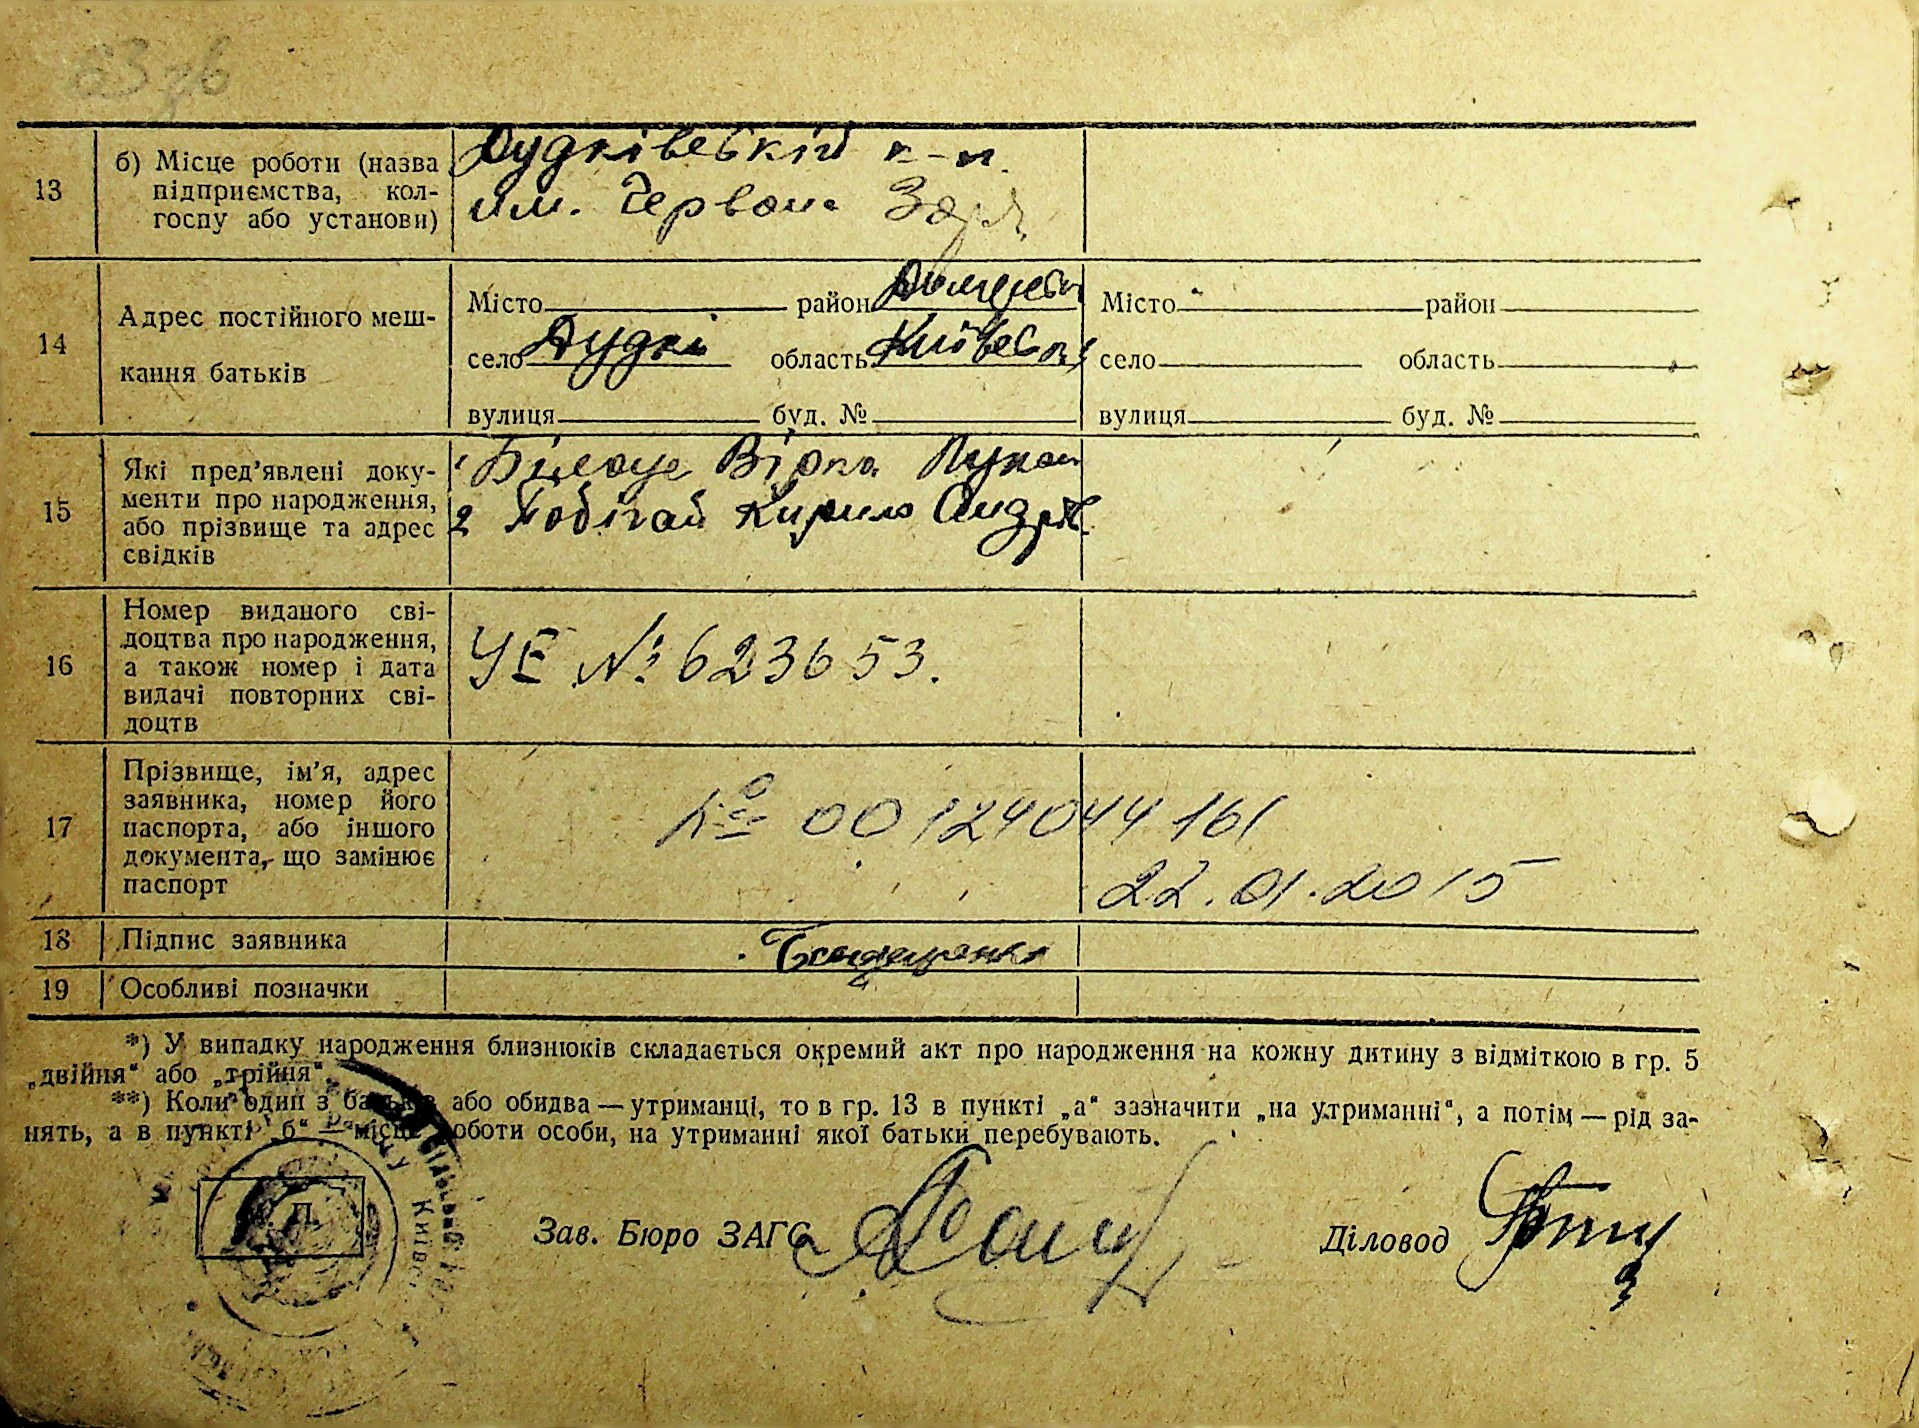 63 зв
13
б) Місце роботи (назва
підприємства, кол-
госпу або установи)
Дудківській к-п.
им. Червона Заря
14
Адрес постійного меш-
кання батьків
Місто район
село Дудкі область Київська
вулиця буд. №
Місто район
село область
вулиця буд. №
15
Які пред’явлені доку-
менти про народження,
або прізвище та адрес
свідків
1
2 Побігай Кирило Андрів
16
Номер виданого сві-
доцтва про народження,
а також номер і дата
видачі повторних сві-
доцтв
УЕ № 623653.
17
Прізвище, ім’я, адрес
заявника, номер його
паспорта, або іншого
документа, що замінює
паспорт
№ 00124044161
22.01.2015
18
Підпис заявника
19
Особливі позначки
*) У випадку народження близнюків складається окремий акт про народження на кожну дитину з відміткою в гр. 5
„двійня“ або „трійня“
**) Коли один з батьків або обидва — утриманці, то в гр. 13 в пункті „а“ зазначити „на утриманні“, а потім — рід за-
нять, а в пункті „б“ — місце роботи особи, на утриманні якої батьки перебувають.
П.
Зав. Бюро ЗАГС
Діловод